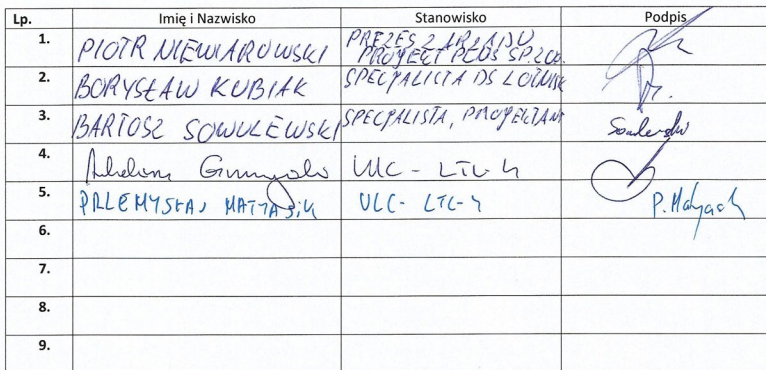 Lp. Imię i Nazwisko Stanowisko Podpis
1. PIOTR NIEWIAROWSKI PREZES ZARZĄDU
PROJEKT PLUS SP. Z O.O.
2. BORYSŁAW KUBIAK SPECJALISTA DS LOTNISK
3. BARTOSZ SOWULEWSKI SPECJALISTA, PROJEKTANT
4. ULC - LTL-4
5. PRZEMYSŁAW MATYASIK ULC - LTL-4 P. Matyasik
6.
7.
8.
9.